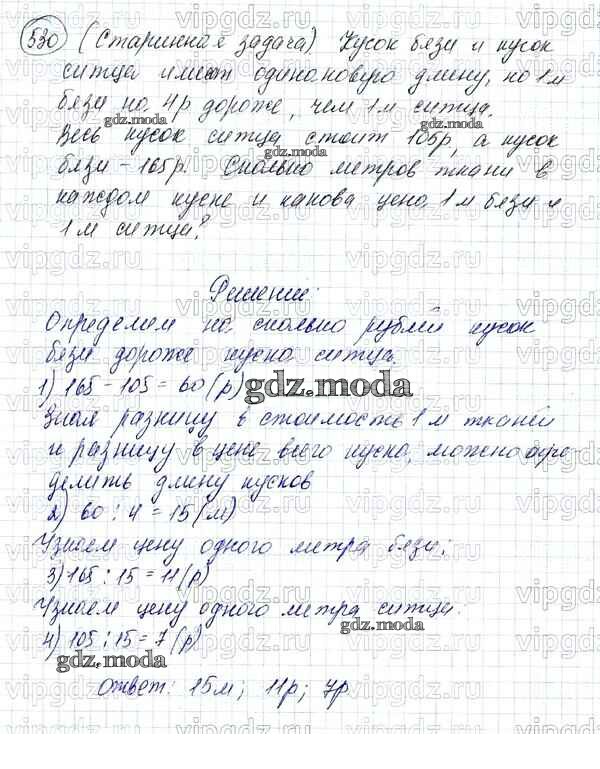 530 (Старинная задача) Кусок бязи и кусок
ситца имеют одинаковую длину, но 1 м
бязи на 4р дороже, чем 1 м ситца.
Весь кусок ситца стоит 105р, а кусок
gdz.moda
бязи - 165р. Сколько метров ткани в
каждом куске и какова цена 1 м бязи и
1 м ситца?
Решение:
Определим на сколько рублей кусок
бязи дороже куска ситца.
1) 165 - 105 = 60 (р)
gdz.moda
Зная разницу в стоимость 1 м тканей
и разницу в цене всего куска, можно опре-
делить длину кусков
2) 60 : 4 = 15 (м)
Узнаем цену одного метра бязи:
3) 165 : 15 = 11 (р)
Узнаем цену одного метра ситца:
gdz.moda
4) 105 : 15 = 7 (р)
gdz.moda
Ответ: 15м; 11р; 7р
vipgdz.ru